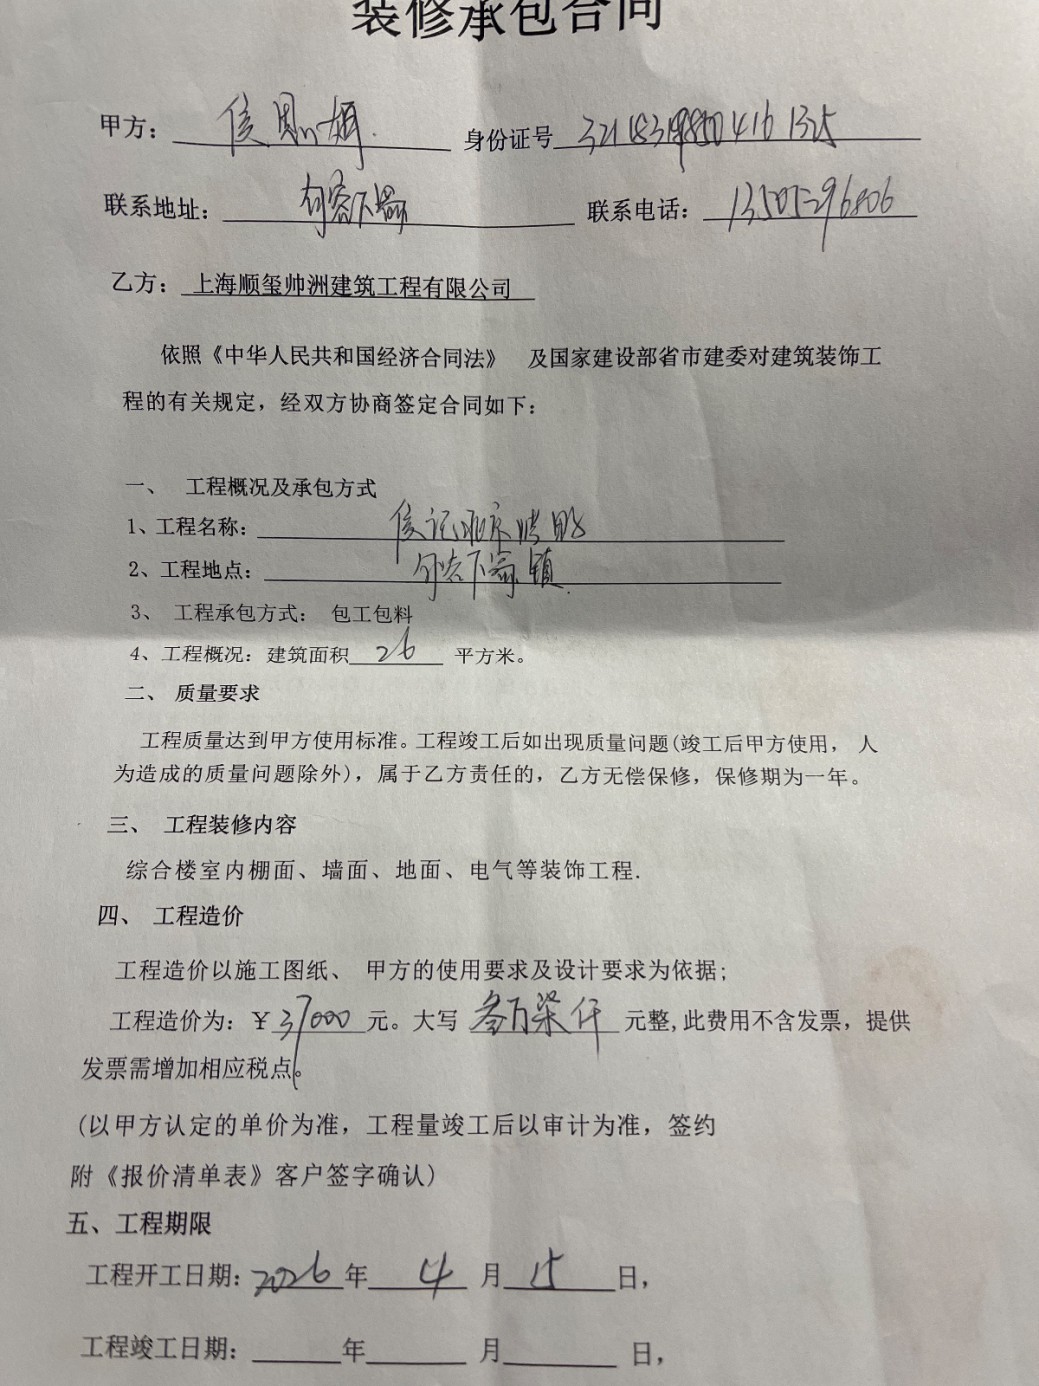 装修承包合同
甲方： 侯 身份证号
联系地址： 句容下蜀 联系电话：
乙方： 上海顺玺帅洲建筑工程有限公司
依照《中华人民共和国经济合同法》 及国家建设部省市建委对建筑装饰工
程的有关规定，经双方协商签定合同如下：
一、 工程概况及承包方式
1、工程名称： 侯记
2、工程地点： 句容下蜀镇
3、 工程承包方式： 包工包料
4、工程概况：建筑面积 26 平方米。
二、 质量要求
工程质量达到甲方使用标准。工程竣工后如出现质量问题(竣工后甲方使用， 人
为造成的质量问题除外)，属于乙方责任的，乙方无偿保修，保修期为一年。
三、 工程装修内容
综合楼室内棚面、墙面、地面、电气等装饰工程.
四、 工程造价
工程造价以施工图纸、 甲方的使用要求及设计要求为依据；
工程造价为：￥37000 元。大写 叁万柒仟 元整,此费用不含发票，提供
发票需增加相应税点。
(以甲方认定的单价为准，工程量竣工后以审计为准，签约
附《报价清单表》客户签字确认)
五、工程期限
工程开工日期：2026年 4 月 15 日，
工程竣工日期： 年 月 日，